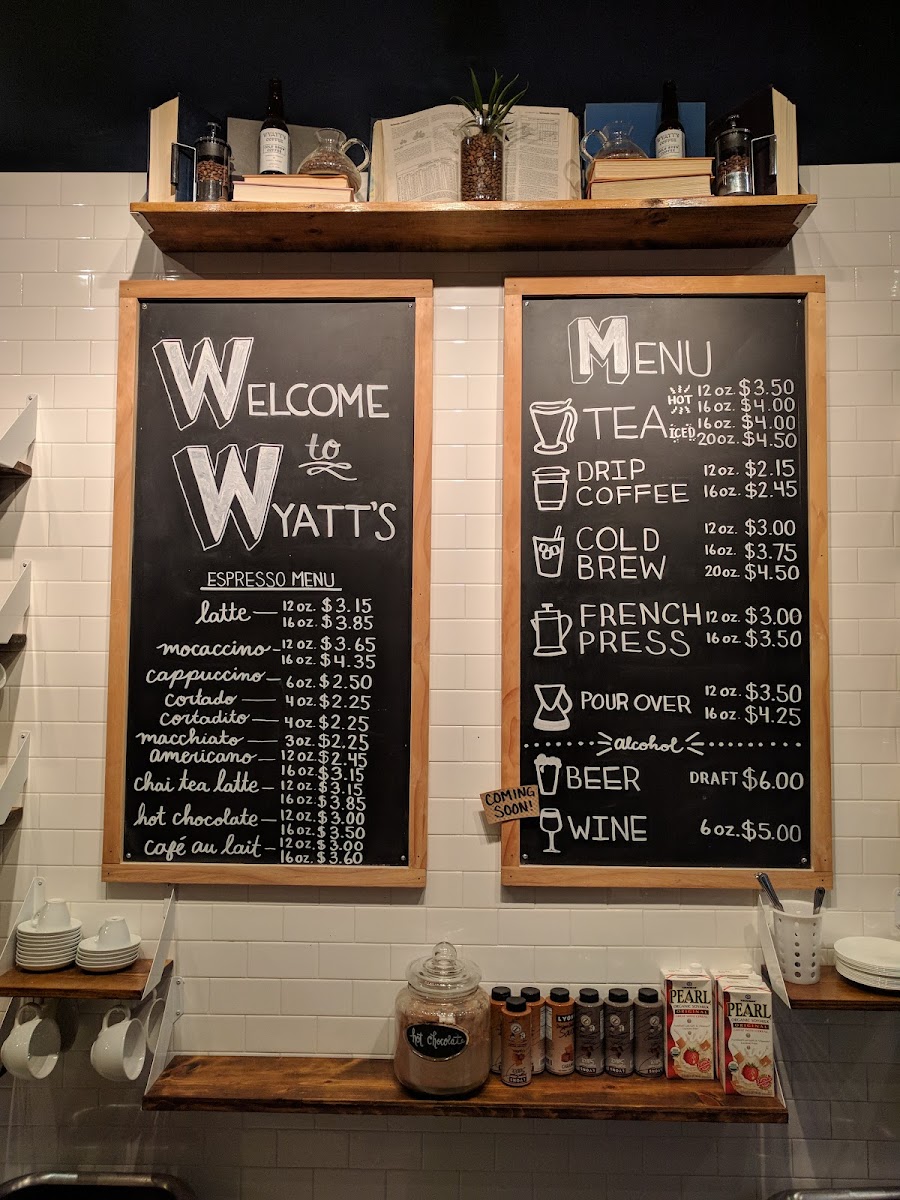 WELCOME
to
WYATT'S
ESPRESSO MENU
latte — 12 oz. $3.15
16 oz. $3.85
mocaccino - 12 oz. $3.65
16 oz. $4.35
cappuccino - 6 oz. $2.50
cortado — 4 oz. $2.25
cortadito — 4 oz. $2.25
macchiato — 3 oz. $2.25
americano — 12 oz. $2.45
16 oz. $3.15
chai tea latte — 12 oz. $3.15
16 oz. $3.85
hot chocolate — 12 oz. $3.00
16 oz. $3.50
café au lait — 12 oz. $3.00
16 oz. $3.60
MENU
TEA HOT 12 oz. $3.50
16 oz. $4.00
ICED 16 oz. $4.00
20 oz. $4.50
DRIP 12 oz. $2.15
COFFEE 16 oz. $2.45
COLD 12 oz. $3.00
BREW 16 oz. $3.75
20 oz. $4.50
FRENCH 12 oz. $3.00
PRESS 16 oz. $3.50
POUR OVER 12 oz. $3.50
16 oz. $4.25
alcohol
BEER DRAFT $6.00
COMING
SOON!
WINE 6 oz. $5.00
hot chocolate
PEARL
ORGANIC SOYMILK
ORIGINAL
PEARL
ORGANIC SOYMILK
ORIGINAL